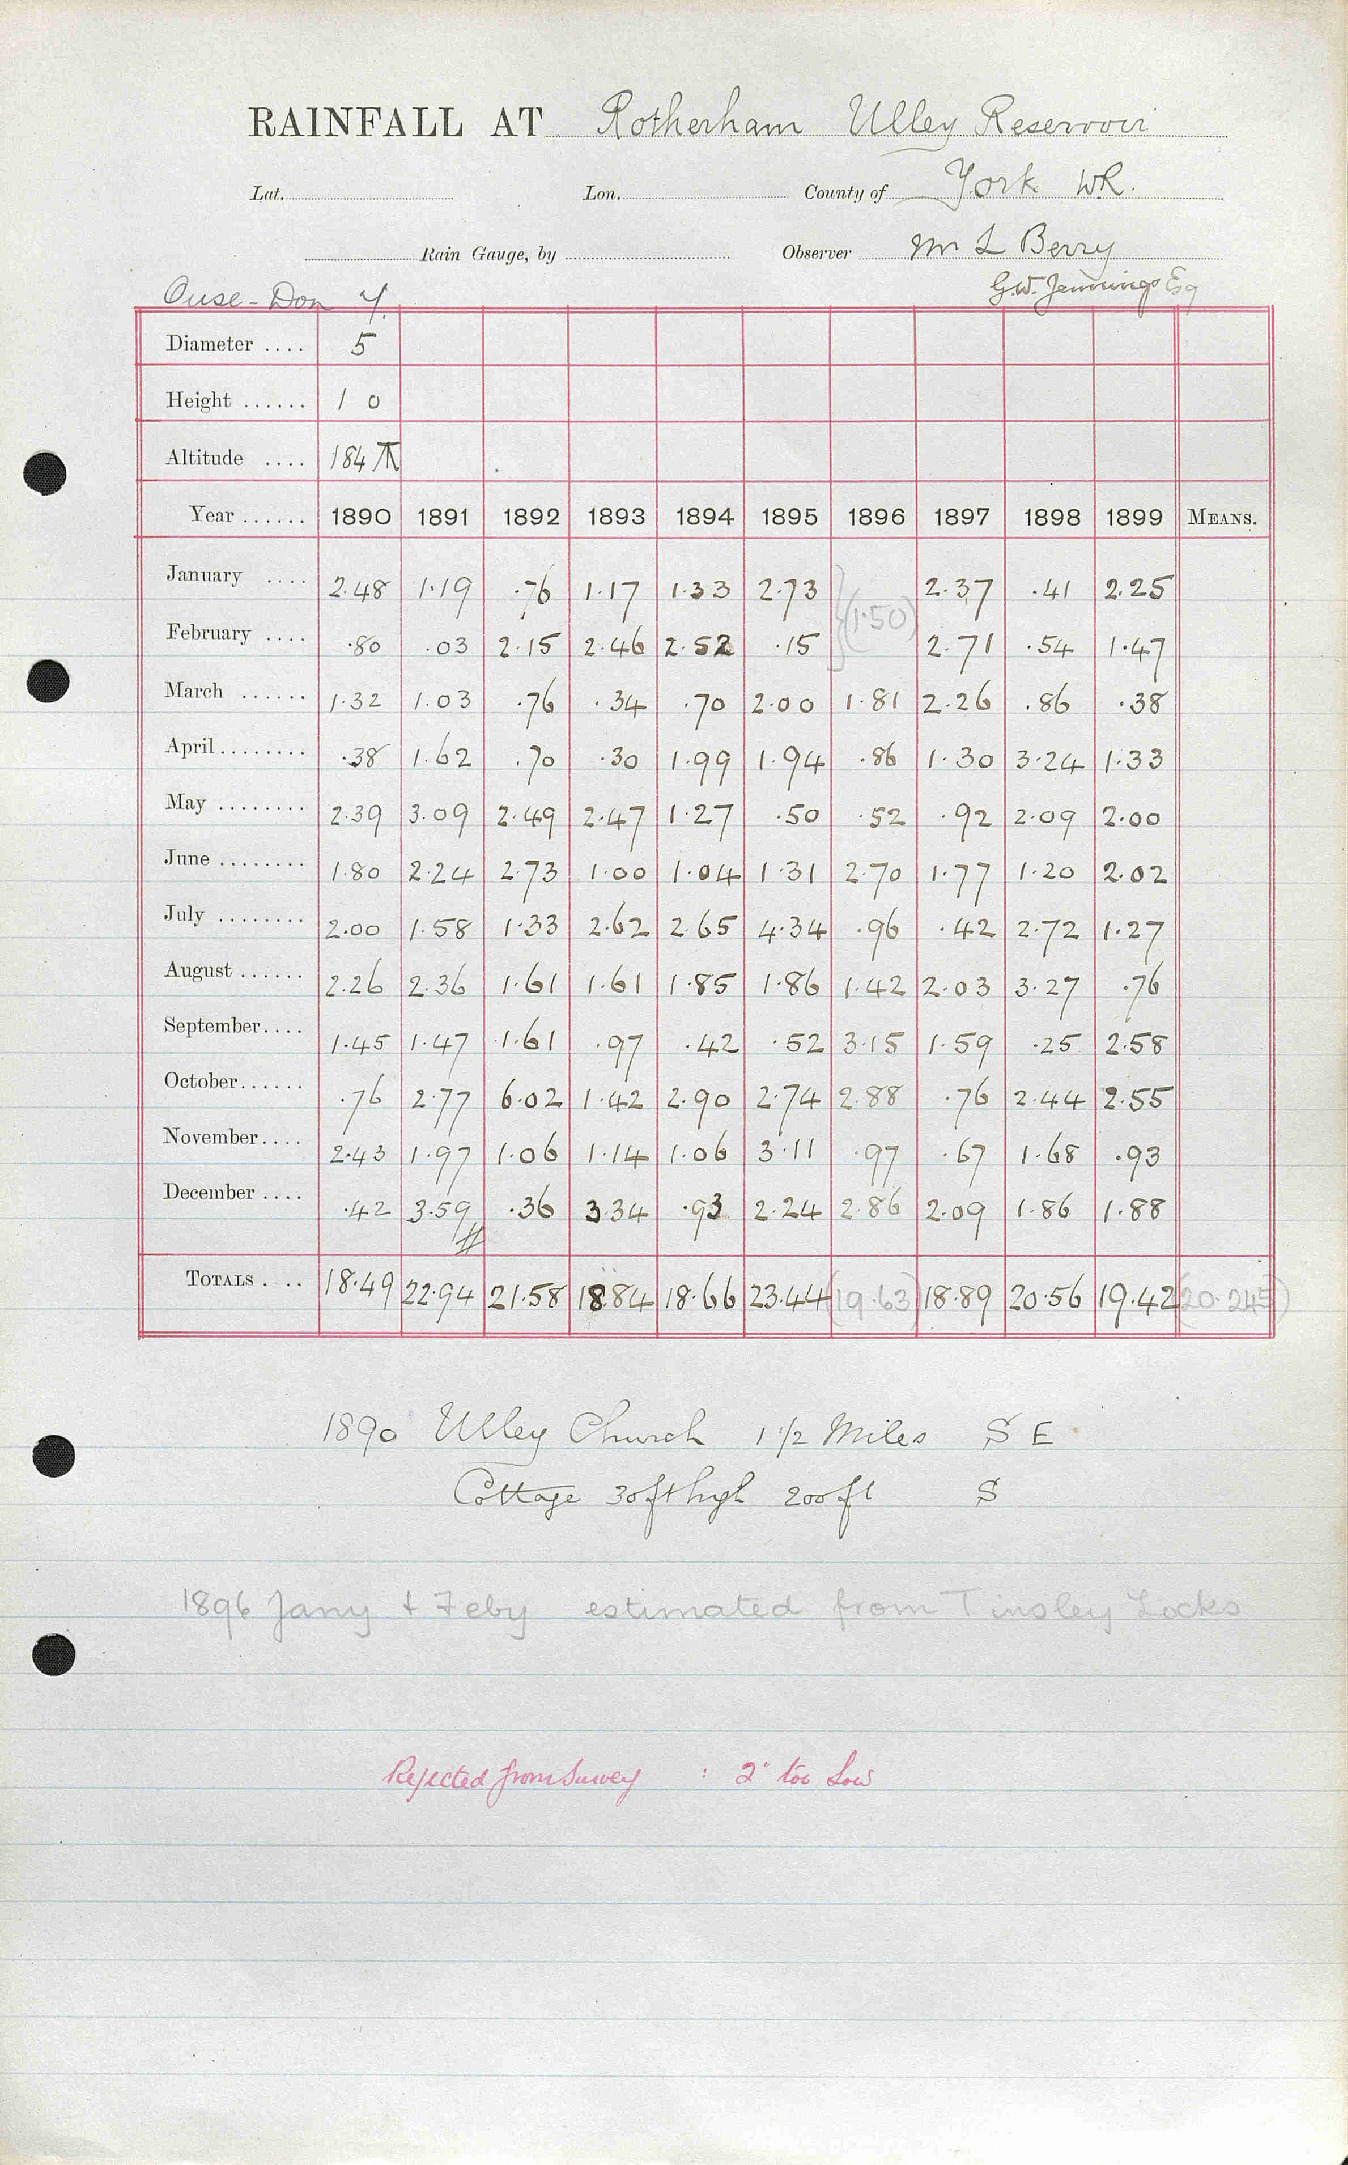 RAINFALL AT Rotherham Ulley Reservoir
Lat. Lon. County of York WR.
Rain Gauge, by Observer Mr L Berry
Ouse-Don Y. G.W. Jennings Esq
Diameter .... 5
Height ...... 1 0
Altitude .... 184
Year ...... 1890 1891 1892 1893 1894 1895 1896 1897 1898 1899 MEANS.
January .... 2.48 1.19 .76 1.17 1.33 2.73 2.37 .41 2.25
(1.50)
February .... .80 .03 2.15 2.46 2.52 .15 2.71 .54 1.47
March ...... 1.32 1.03 .76 .34 .70 2.00 1.81 2.26 .86 .38
April ........ .38 1.62 .70 .30 1.99 1.94 .86 1.30 3.24 1.33
May ........ 2.39 3.09 2.49 2.47 1.27 .50 .52 .92 2.09 2.00
June ........ 1.80 2.24 2.73 1.00 1.04 1.31 2.70 1.77 1.20 2.02
July ........ 2.00 1.58 1.33 2.62 2.65 4.34 .96 .42 2.72 1.27
August ...... 2.26 2.36 1.61 1.61 1.85 1.86 1.42 2.03 3.27 .76
September.... 1.45 1.47 1.61 .97 .42 .52 3.15 1.59 .25 2.58
October...... .76 2.77 6.02 1.42 2.90 2.74 2.88 .76 2.44 2.55
November.... 2.43 1.97 1.06 1.14 1.06 3.11 .97 .67 1.68 .93
December .... .42 3.59 .36 3.34 .93 2.24 2.86 2.09 1.86 1.88
TOTALS . .. 18.49 22.94 21.58 18.84 18.66 23.44 (19.63) 18.89 20.56 19.42 (20.245)
1890 Ulley Church 1 1/2 Miles S E
Cottage 30ft high 200ft S
1896 Jany & Feby estimated from Tinsley Locks
Rejected from Survey : 2" too Low